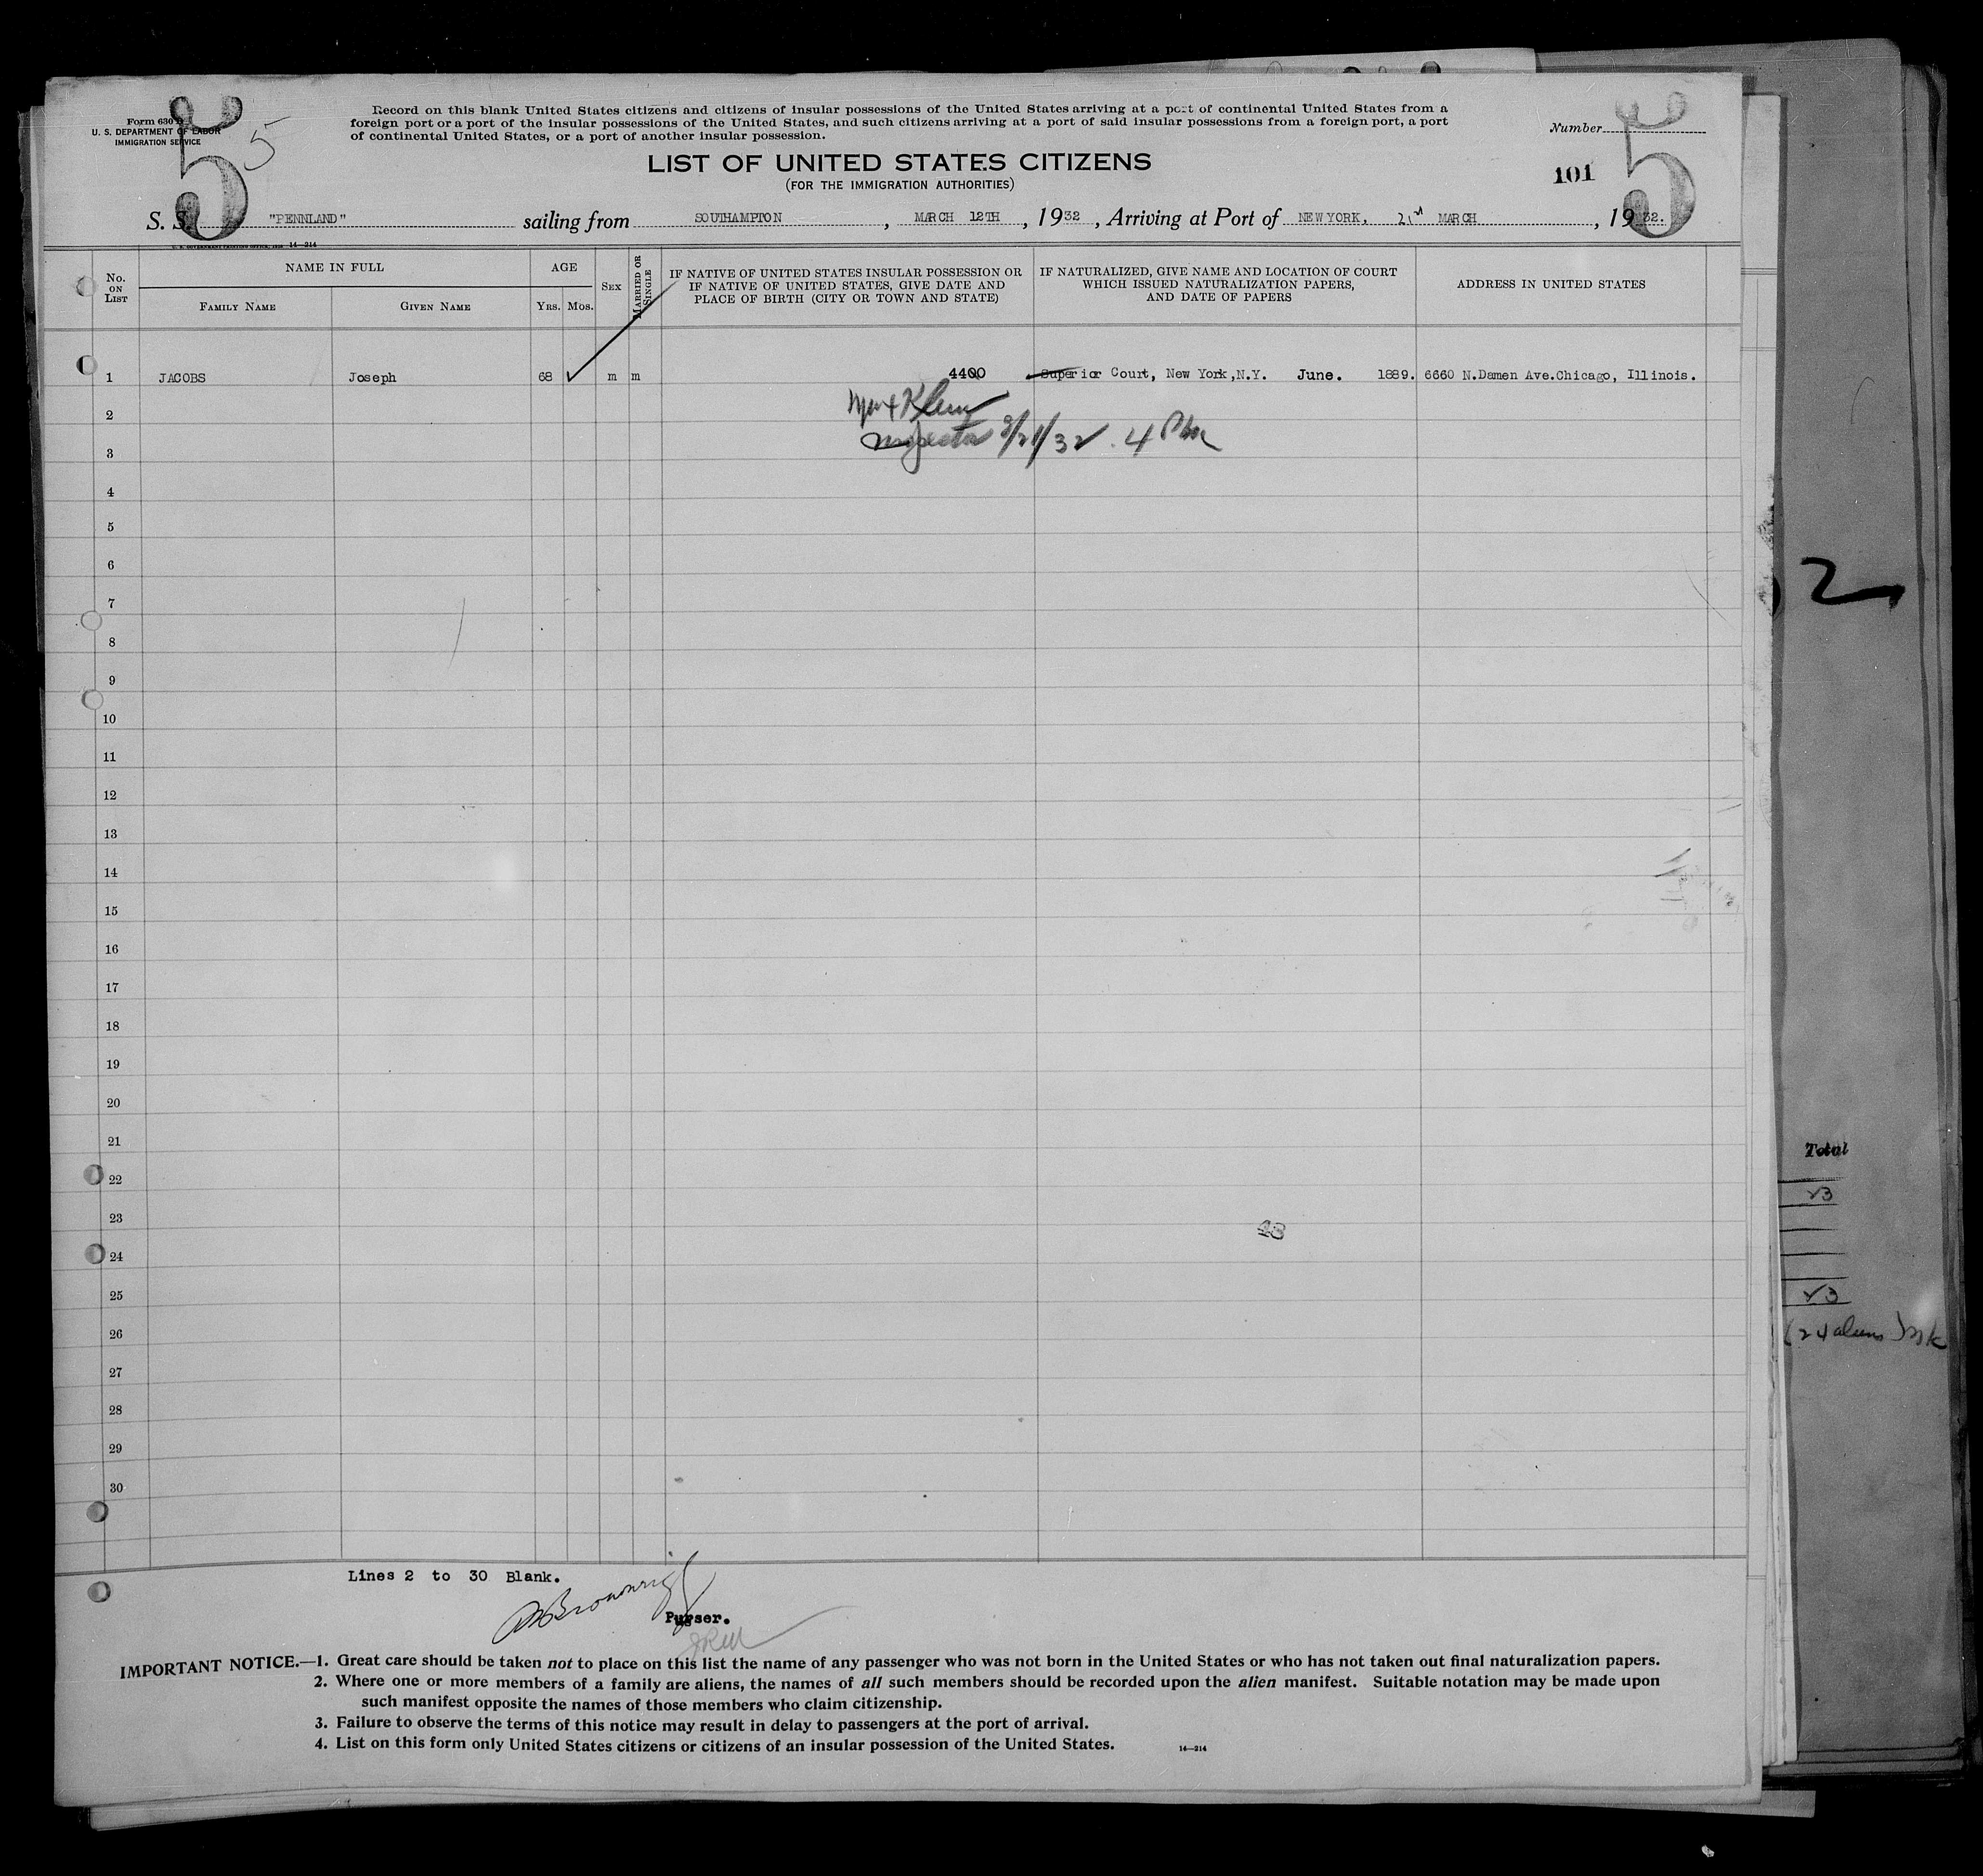 Form 630 B
U. S. DEPARTMENT OF LABOR
IMMIGRATION SERVICE
5
5
Record on this blank United States citizens and citizens of insular possessions of the United States arriving at a port of continental United States from a
foreign port or a port of the insular possessions of the United States, and such citizens arriving at a port of said insular possessions from a foreign port, a port
of continental United States, or a port of another insular possession.
Number
5
LIST OF UNITED STATES CITIZENS
(FOR THE IMMIGRATION AUTHORITIES)
101
S. S. "PENNLAND" sailing from SOUTHAMPTON, MARCH 12TH, 1932, Arriving at Port of NEW YORK, 21st MARCH, 1932.
14—214
No. ON LIST
NAME IN FULL
FAMILY NAME
GIVEN NAME
AGE
YRS.
MOS.
SEX
MARRIED OR SINGLE
IF NATIVE OF UNITED STATES INSULAR POSSESSION OR
IF NATIVE OF UNITED STATES, GIVE DATE AND
PLACE OF BIRTH (CITY OR TOWN AND STATE)
IF NATURALIZED, GIVE NAME AND LOCATION OF COURT
WHICH ISSUED NATURALIZATION PAPERS,
AND DATE OF PAPERS
ADDRESS IN UNITED STATES
1 JACOBS Joseph 68 m m 4400 Superior Court, New York,N.Y. June. 1889. 6660 N.Damen Ave.Chicago, Illinois.
2
Klein
3
Inspector 3/21/32 . 4
4
5
6
7
8
9
10
11
12
13
14
15
16
17
18
19
20
21
22
23
48
24
25
26
27
28
29
30
2
Total
23
23
(24 aliens)
Lines 2 to 30 Blank.
Purser.
IMPORTANT NOTICE.—1. Great care should be taken not to place on this list the name of any passenger who was not born in the United States or who has not taken out final naturalization papers.
2. Where one or more members of a family are aliens, the names of all such members should be recorded upon the alien manifest. Suitable notation may be made upon
such manifest opposite the names of those members who claim citizenship.
3. Failure to observe the terms of this notice may result in delay to passengers at the port of arrival.
4. List on this form only United States citizens or citizens of an insular possession of the United States.
14—214